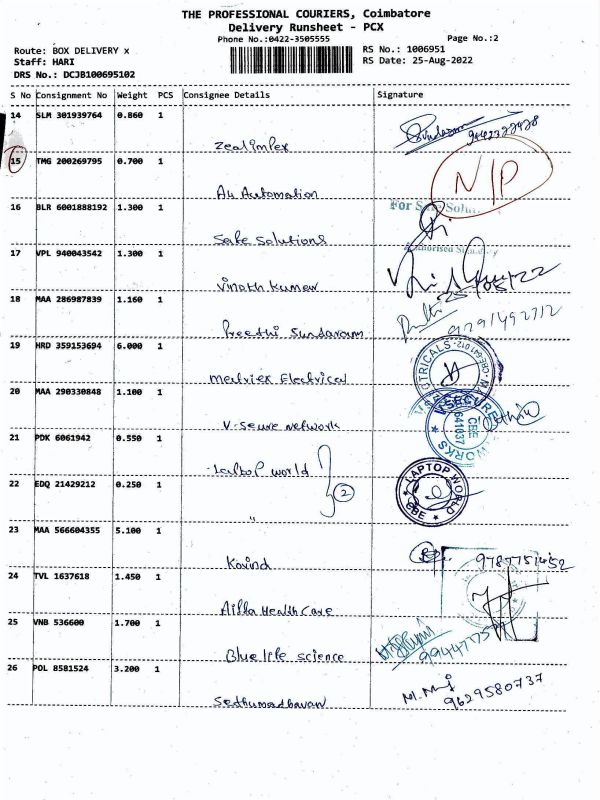 THE PROFESSIONAL COURIERS, Coimbatore
Delivery Runsheet - PCX
Phone No.:0422-3505555
Page No.:2
Route: BOX DELIVERY x
RS No.: 1006951
Staff: HARI
RS Date: 25-Aug-2022
DRS No.: DCJB100695102
S No Consignment No Weight PCS Consignee Details Signature
14 SLM 301939764 0.860 1
Zealimpex
15 TMG 200269795 0.700 1
N/P
Au Automation
16 BLR 6001888192 1.300 1
For Safe Solu
Authorised Signatory
Safe Solutions
17 VPL 940043542 1.300 1
Vinoth Kumar
18 MAA 286987839 1.160 1
9291492712
Preethi Sundaram
19 HRD 359153694 6.000 1
Matriex Electrical
20 MAA 290330848 1.100 1
V-SECURE
CBE
641037
WORKS
V-Seure network
21 PDK 6061942 0.550 1
Laptop world
22 EDQ 21429212 0.250 1
2
LAPTOP WORLD
CBE
"
23 MAA 566604355 5.100 1
9787751452
Kovind
24 TVL 1637618 1.450 1
Ailta Health Care
25 VNB 536600 1.700 1
Blue life science
26 POL 8581524 3.200 1
9629580737
Sethumadhavan